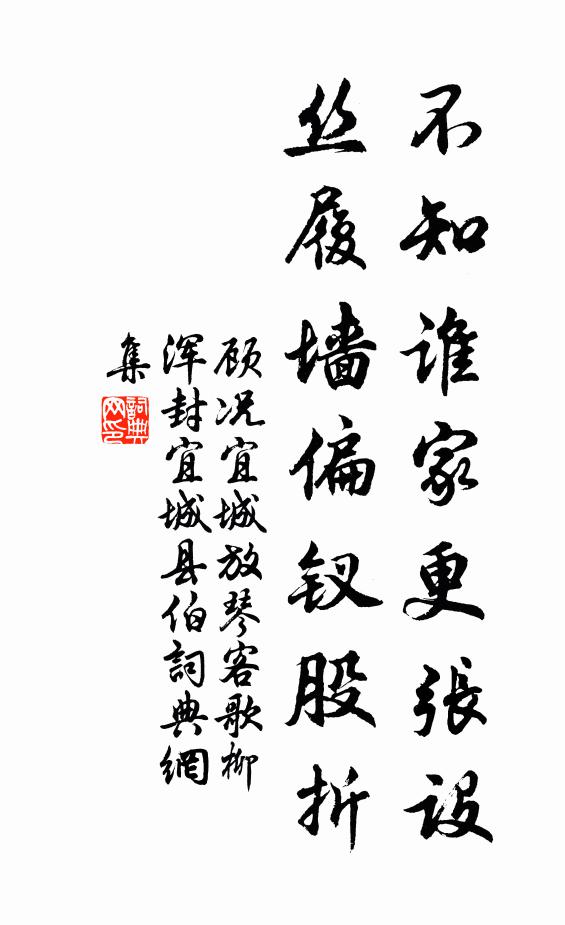 不知谁家更张设
丝履墙偏钗股折
顾况宜城放琴客歌柳
浑封宜城县伯詞典網
集
詞典
网印